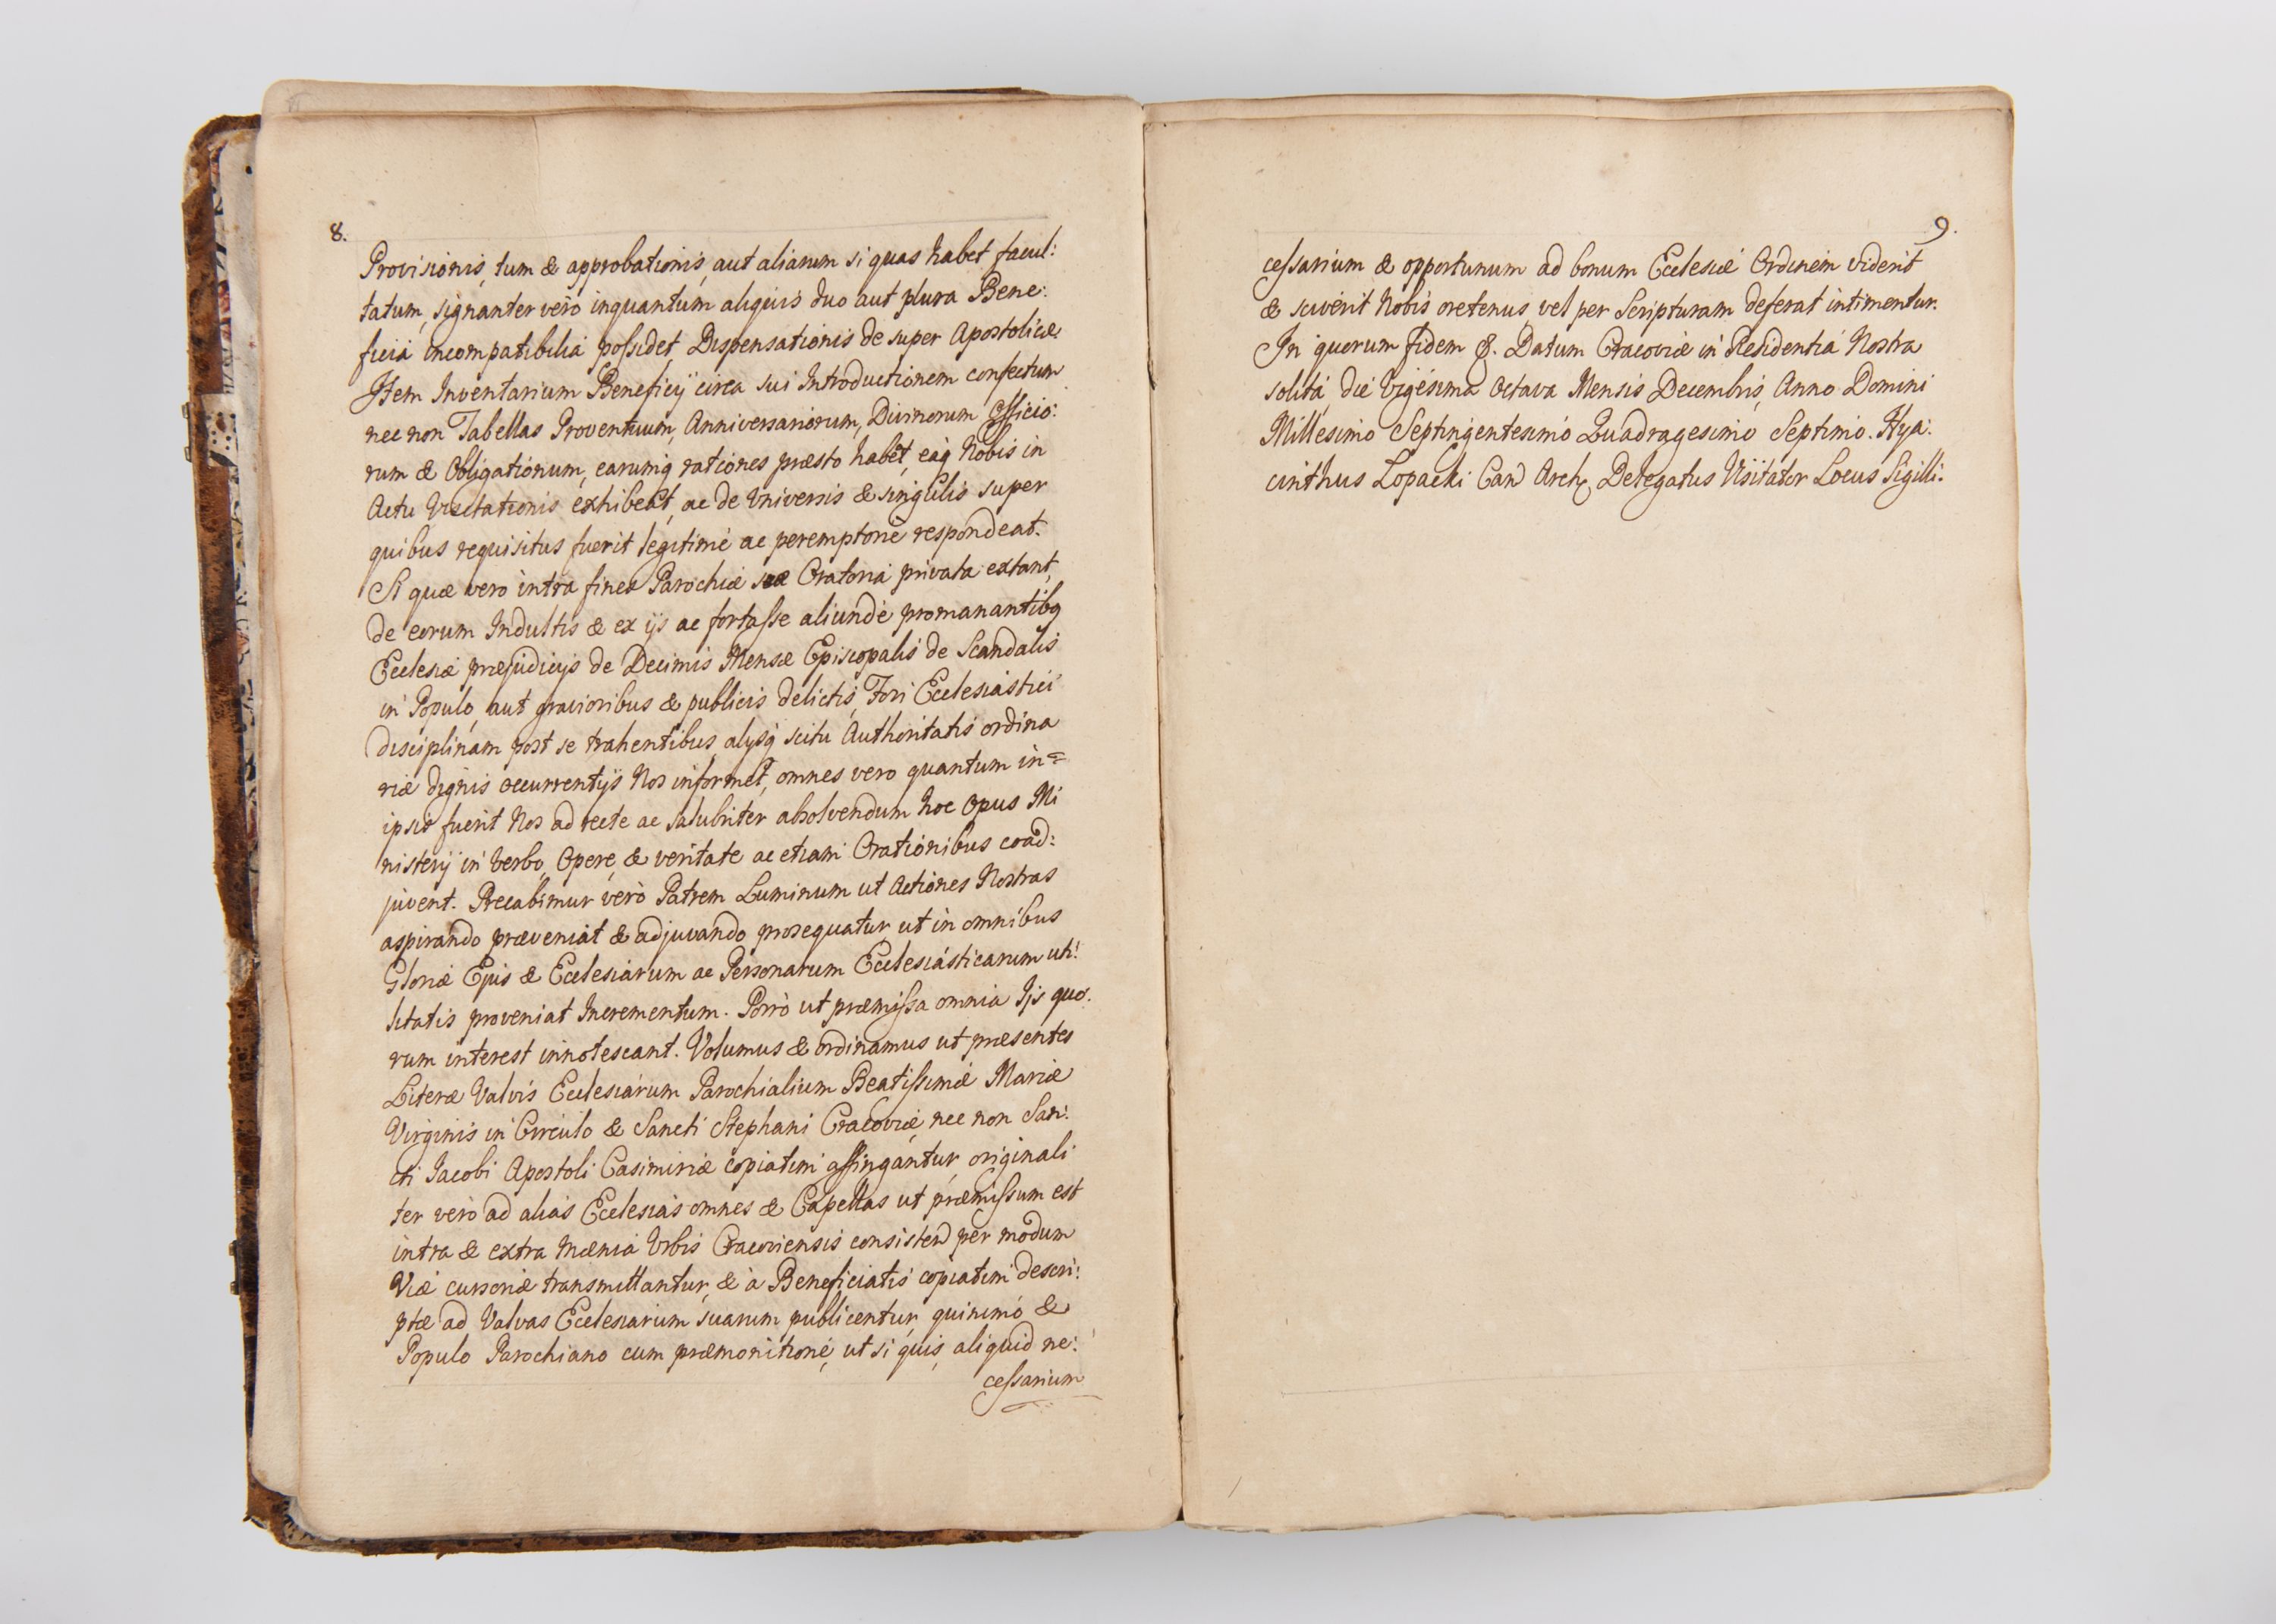 8.
Provisionis, tum & approbationis, aut aliarum si quas habet facul:
tatum, signanter vero inquantum aliquis duo aut plura Bene:
ficia incompatibilia possidet, Dispensationis de super Apostolicæ.
Item Inventarium Beneficij circa sui Introductionem confectum
nec non Tabellas Proventuum, Anniversariorum, Divinorum Officio:
rum & Obligationum, earumq rationes præsto habet, eaq Nobis in
Actu Visitationis exhibeat, ac de Universis & singulis super
quibus requisitus fuerit legitimè ac peremptoriè respondeat.
Si quæ vero intra fines Parochiæ suæ Oratoria privata extant,
de eorum Indultis & ex ijs ac fortasse aliundè promanantibq
Ecclesiæ præjudicijs de Decimis Mensæ Episcopalis de Scandalis
in Populo, aut gravioribus & publicis delictis, Fori Ecclesiastici
disciplinam post se trahentibus, alysq scitu Authoritatis ordina
riæ dignis occurrentijs Nos informet, omnes vero quantum in=
ipsis fuerit Nos ad recte ac salubriter absolvendum hoc Opus Mi
nisterij in Verbo, Opere, & veritate ac etiam Orationibus coad:
juvent. Precabimur verò Patrem Luminum ut Actiones Nostras
aspirando præveniat & adjuvando prosequatur ut in omnibus
Gloriæ Ejus & Ecclesiarum ac Personarum Ecclesiasticarum uti:
litatis proveniat Incrementum. Porrò ut præmissa omnia Ijs quo:
rum interest innotescant. Volumus & ordinamus ut præsentes
Literæ Valvis Ecclesiarum Parochialium Beatissimæ Mariæ
Virginis in Circulo & Sancti Stephani Cracoviæ, nec non San:
cti Jacobi Apostoli Casimiriæ copiatim affingantur, originali
ter verò ad alias Ecclesias omnes & Capellas ut præmissum est
intra & extra Mænia Urbis Cracoviensis consisten per modum
Viæ cursoriæ transmittantur, & à Beneficiatis copiatim descri:
ptæ ad Valvas Ecclesiarum suarum publicentur, quinimò &
Populo Parochiano cum præmonitione, ut si quis, aliquid ne:
cessarium
9.
cessarium & opportunum ad bonum Ecclesiæ Ordinem viderit
& sciverit Nobis oretenus, vel per Scripturam deferat intimentur.
In quorum fidem &. Datum Cracoviæ in Residentia Nostra
solita, die Vigesima Octava Mensis Decembris, Anno Domini
Millesimo Septingentesimo Quadragesimo Septimo. Hya:
cinthus Lopacki Can Arch, Delegatus Visitator Locus Sigilli.